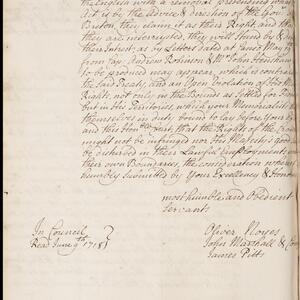 the English with a removal pretending
it is by the advice & direction of the Gov.r
Breton, they claim it as their Right and if
they are interrupted, they will stand by &
their Intrest, as by Letters dated at
from Cap. Andrew Robinson & Mr. John Henshaw
to be produced may appear, which is contrary
the said Treaty, and an Open Violation of the
Right, not only in the Bounds as Settled for
but in his Territories, which your Memorialists
themselves in duty bound to lay before your
and this Hon.ble Court, that the Rights of the Crown
might not be infringed nor his Majesty's good
be disturbed in their Lawful Imployments
their own Boundaries, the consideration whereof
humbly Submitted by Your Excellency & Honours
most humble and Obedient
Servants
In Council
Read June 9th 1718
Oliver Noyes
John Marshall &
James Pitts